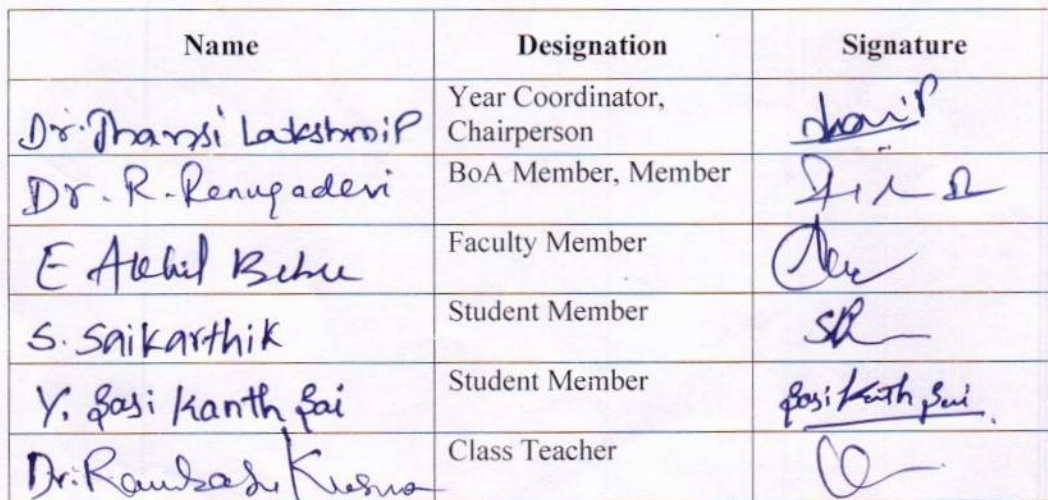 Name Designation Signature
Dr. Jhansi Lakshmi P Year Coordinator,
Chairperson
Dr. R. Renugadevi BoA Member, Member
E Akhil Babu Faculty Member
S. Saikarthik Student Member SK
Y. Sasi Kanth Sai Student Member Sasi Kanth Sai
Dr. Class Teacher